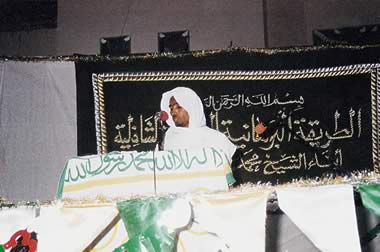 بسم الله الرحمن
الطريقة البرهانية الشاذلية
أبناء الشيخ محمد
لا إله إلا الله محمد رسول الله